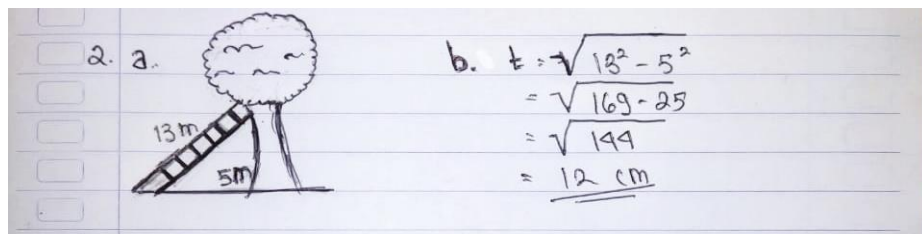 2. a.
13 m
5 m
b. t = √13² - 5²
= √169 - 25
= √144
= 12 cm